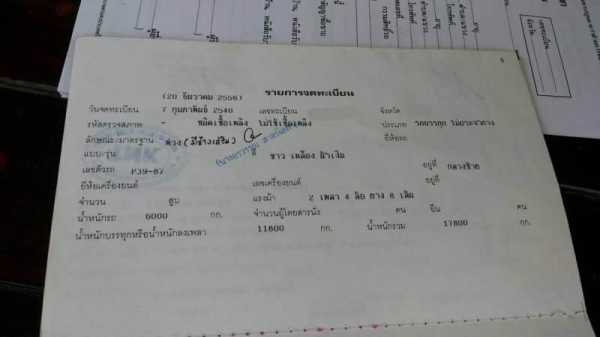 (20 ธันวาคม 2556) รายการจดทะเบียน
วันจดทะเบียน 7 กุมภาพันธ์ 2540 เลขทะเบียน จังหวัด
รหัสตรวจสภาพ - ชนิดเชื้อเพลิง ไม่ใช้เชื้อเพลิง ประเภท รถบรรทุก ไม่ประจำทาง
ลักษณะ/มาตรฐาน พ่วง(มีข้างเสริม) ยี่ห้อรถ
แบบ/รุ่น สี ขาว เหลือง น้ำเงิน
เลขตัวรถ P39-87 อยู่ที่ กลางซ้าย
ยี่ห้อเครื่องยนต์ เลขเครื่องยนต์ อยู่ที่
จำนวน สูบ แรงม้า 2 เพลา 4 ล้อ ยาง 8 เส้น
น้ำหนักรถ 6000 กก. จำนวนผู้โดยสารนั่ง คน ยืน คน
น้ำหนักบรรทุกหรือน้ำหนักลงเพลา 11800 กก. น้ำหนักรวม 17800 กก.